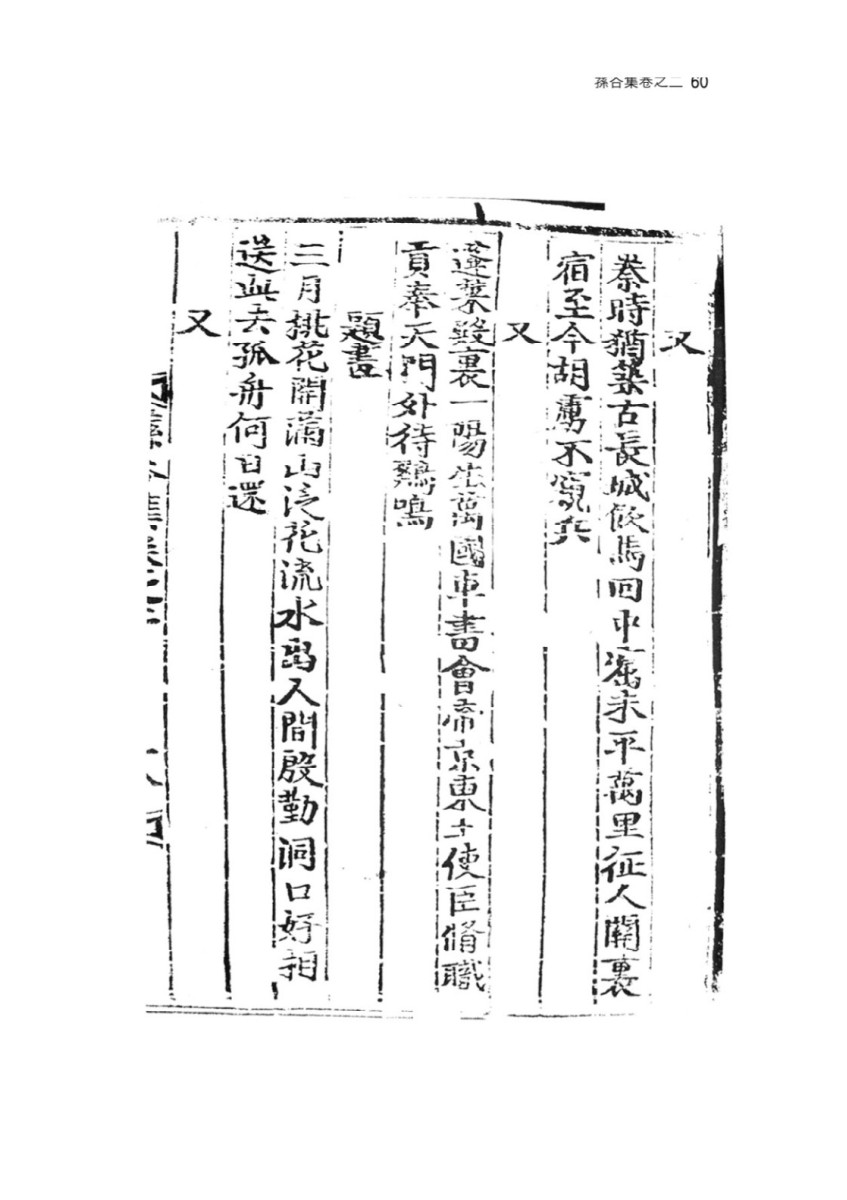 孫谷集卷之二 60
又
秦時猶築古長城飮馬回中窩未平萬里征人關裏
宿至今胡虜不窺兵
又
蓬萊殿裏一陽生萬國車書會帝京東土使臣脩職
貢奉天門外待鷄鳴
題畫
三月桃花開滿山泛花流水出人間殷勤洞口好相
送此去孤舟何日還
又